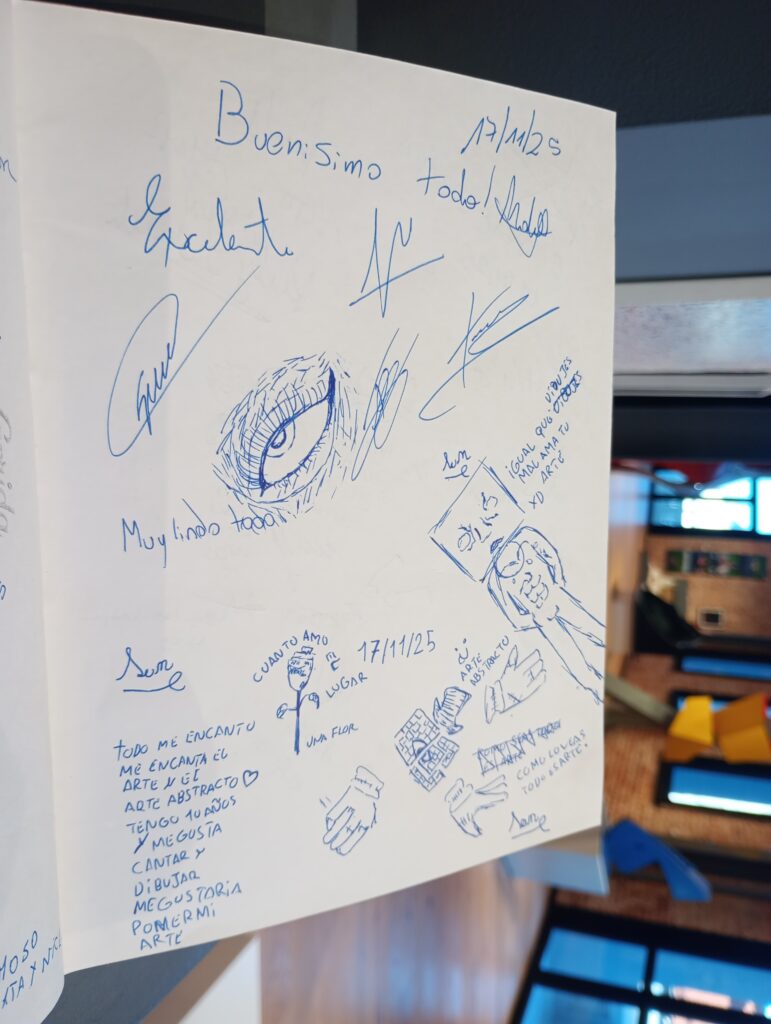 Buenisimo
todo!
17/11/25
Excelente
Muy lindo todo!
Sun
IGUAL QUE DIBUJES
MAL AMA TU
ARTE
XD
Sun
CUANTO AMO
EL
LUGAR
UNA FLOR
17/11/25
ARTE
ABSTRACTO
COMO LO VEAS
TODO ES ARTE.
Sun
TODO ME ENCANTO
ME ENCANTA EL
ARTE Y EL
ARTE ABSTRACTO ♡
TENGO 10 AÑOS
Y ME GUSTA
CANTAR Y
DIBUJAR
MEGUSTARIA
PONER MI
ARTE